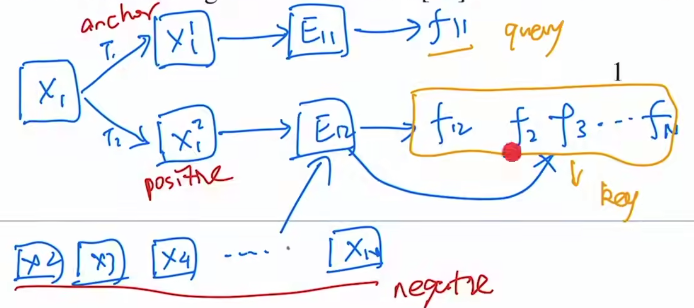 anchor
T₁ X₁¹ E₁₁ f₁₁ query
X₁ 1
T₂ X₁² E₁₂ f₁₂ f₂ f₃ ... fₙ
positive key
X2 X3 X4 ..... Xₙ
negative